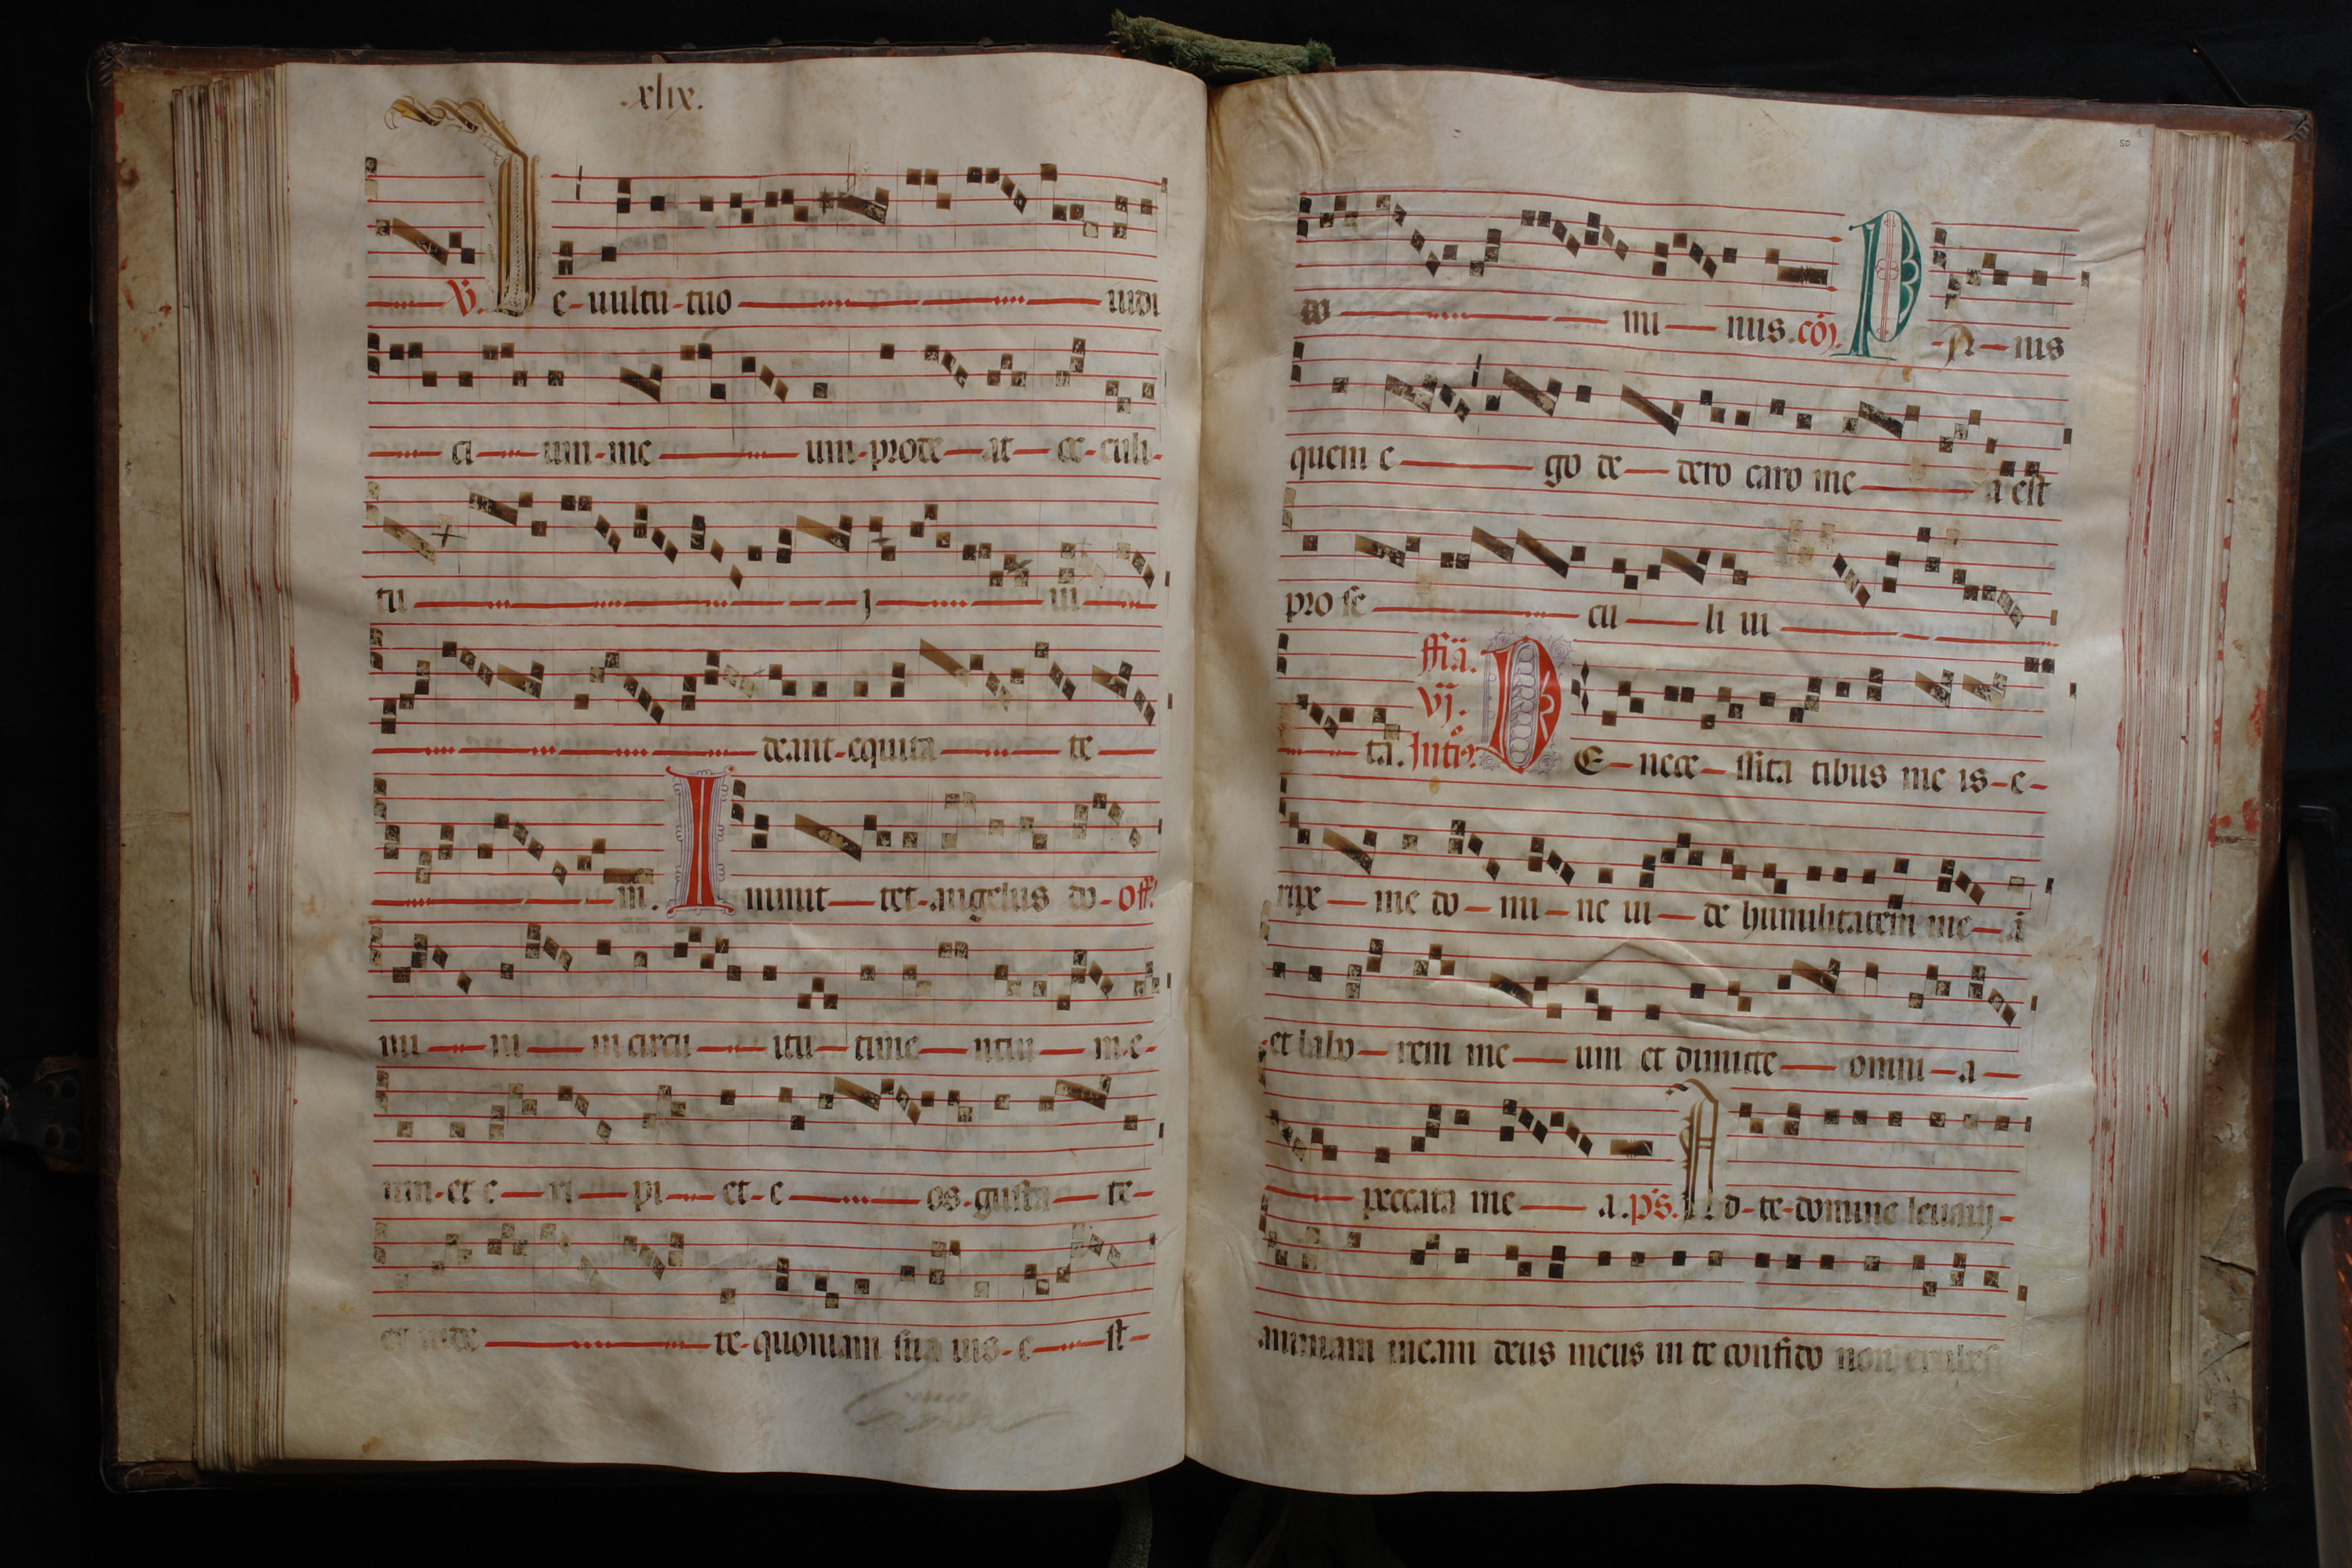 .xlix.
V. De-uultu-tuo uidi
ci um-me um-prode-at ce-culi-
tu j ui
deant-equita te
m. Inmit-tet-angelus do-off.
mi ni in circu itu-time-ntiu m-e-
um-et e-ri-pi et-e os-gusta-te-
et uide te-quoniam sua uis-e-st-
50
do mi-nus.cōj. PA-nis
quem e go de-dero caro me a est
pro se cu-li ui
ffia.
vj.
ta. Intr. DE-nece-ssita tibus me is-e-
ripe-me do-mi-ne ui-de humilitatem me-ā
et labo-rem me-um et dimitte-omni-a-
peccata me-a.ps. Ad-te-domine leuauj-
animam meam deus meus in te confido non erubes